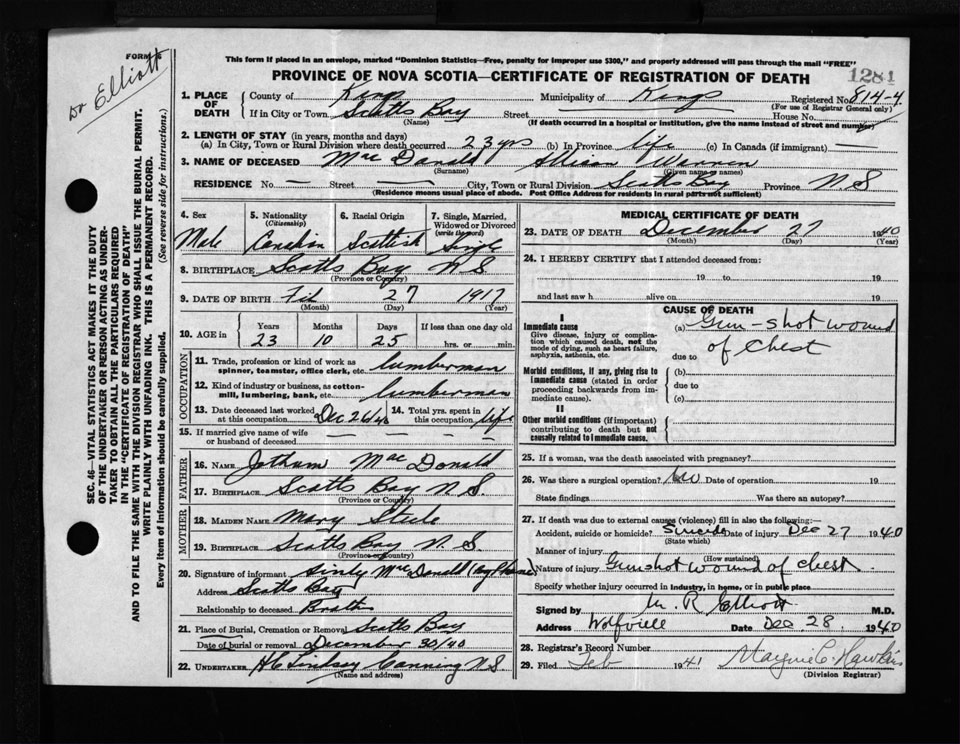 Dr Elliott
FORM 6
SEC. 46—VITAL STATISTICS ACT MAKES IT THE DUTY
OF THE UNDERTAKER OR PERSON ACTING AS UNDER-
TAKER TO OBTAIN ALL THE PARTICULARS REQUIRED
IN THE "CERTIFICATE OF REGISTRATION OF DEATH"
AND TO FILE THE SAME WITH THE DIVISION REGISTRAR WHO SHALL ISSUE THE BURIAL PERMIT.
WRITE PLAINLY WITH UNFADING INK. THIS IS A PERMANENT RECORD.
Every item of information should be carefully supplied. (See reverse side for instructions.)
This form if placed in an envelope, marked "Dominion Statistics—Free, penalty for improper use $300," and properly addressed will pass through the mail "FREE"
PROVINCE OF NOVA SCOTIA—CERTIFICATE OF REGISTRATION OF DEATH 1281
1. PLACE OF DEATH County of Kings Municipality of Kings Registered No. 814-4
(For use of Registrar General only)
If in City or Town Scotts Bay Street House No.
(Name) (If death occurred in a hospital or institution, give the name instead of street and number)
2. LENGTH OF STAY (in years, months and days)
(a) In City, Town or Rural Division where death occurred 23 yrs (b) In Province life (c) In Canada (if immigrant) —
3. NAME OF DECEASED MacDonald Allison Warren
(Surname) (Given name or names)
RESIDENCE No. — Street — City, Town or Rural Division Scotts Bay Province N.S
(Residence means usual place of abode. Post Office Address for residents in rural parts not sufficient)
4. Sex 5. Nationality (Citizenship) 6. Racial Origin 7. Single, Married, Widowed or Divorced (write the word)
Male Canadian Scottish Single
8. BIRTHPLACE Scotts Bay N S
(Province or Country)
9. DATE OF BIRTH 27 1917
(Month) (Day) (Year)
10. AGE in Years Months Days If less than one day old
23 10 25 hrs. or min.
OCCUPATION
11. Trade, profession or kind of work as spinner, teamster, office clerk, etc. lumberman
12. Kind of industry or business, as cotton-mill, lumbering, bank, etc. lumberman
13. Date deceased last worked at this occupation Dec 26/40 14. Total yrs. spent in this occupation life
15. If married give name of wife or husband of deceased — — — —
FATHER
16. NAME Jotham MacDonald
17. BIRTHPLACE Scotts Bay N.S.
(Province or Country)
MOTHER
18. MAIDEN NAME Mary Steele
19. BIRTHPLACE Scotts Bay N. S.
(Province or Country)
20. Signature of informant MacDonald (by Phone)
Address Scotts Bay
Relationship to deceased Brother
21. Place of Burial, Cremation or Removal Scotts Bay
Date of burial or removal December 30/40
22. UNDERTAKER H C Lindsay Canning N S
(Name and address)
MEDICAL CERTIFICATE OF DEATH
23. DATE OF DEATH December 27 1940
(Month) (Day) (Year)
24. I HEREBY CERTIFY that I attended deceased from:
19 to 19
and last saw h alive on 19
CAUSE OF DEATH
I
Immediate cause
Give disease, injury or complication which caused death, not the mode of dying, such as heart failure, asphyxia, asthenia, etc.
(a) Gun-shot wound
of Chest
due to
Morbid conditions, if any, giving rise to immediate cause (stated in order proceeding backwards from immediate cause).
(b)
due to
(c)
II
Other morbid conditions (if important) contributing to death but not causally related to immediate cause.
25. If a woman, was the death associated with pregnancy?
26. Was there a surgical operation? No Date of operation 19
State findings Was there an autopsy?
27. If death was due to external causes (violence) fill in also the following:
Accident, suicide or homicide? Suicide Date of injury Dec 27 1940
(State which)
Manner of injury
(How sustained)
Nature of injury Gunshot wound of chest
Specify whether injury occurred in industry, in home, or in public place
Signed by M. R. Elliott M.D.
Address Wolfville Date Dec. 28 1940
28. Registrar's Record Number
29. Filed Feb 1941 Marjorie C. Hawkins
(Division Registrar)